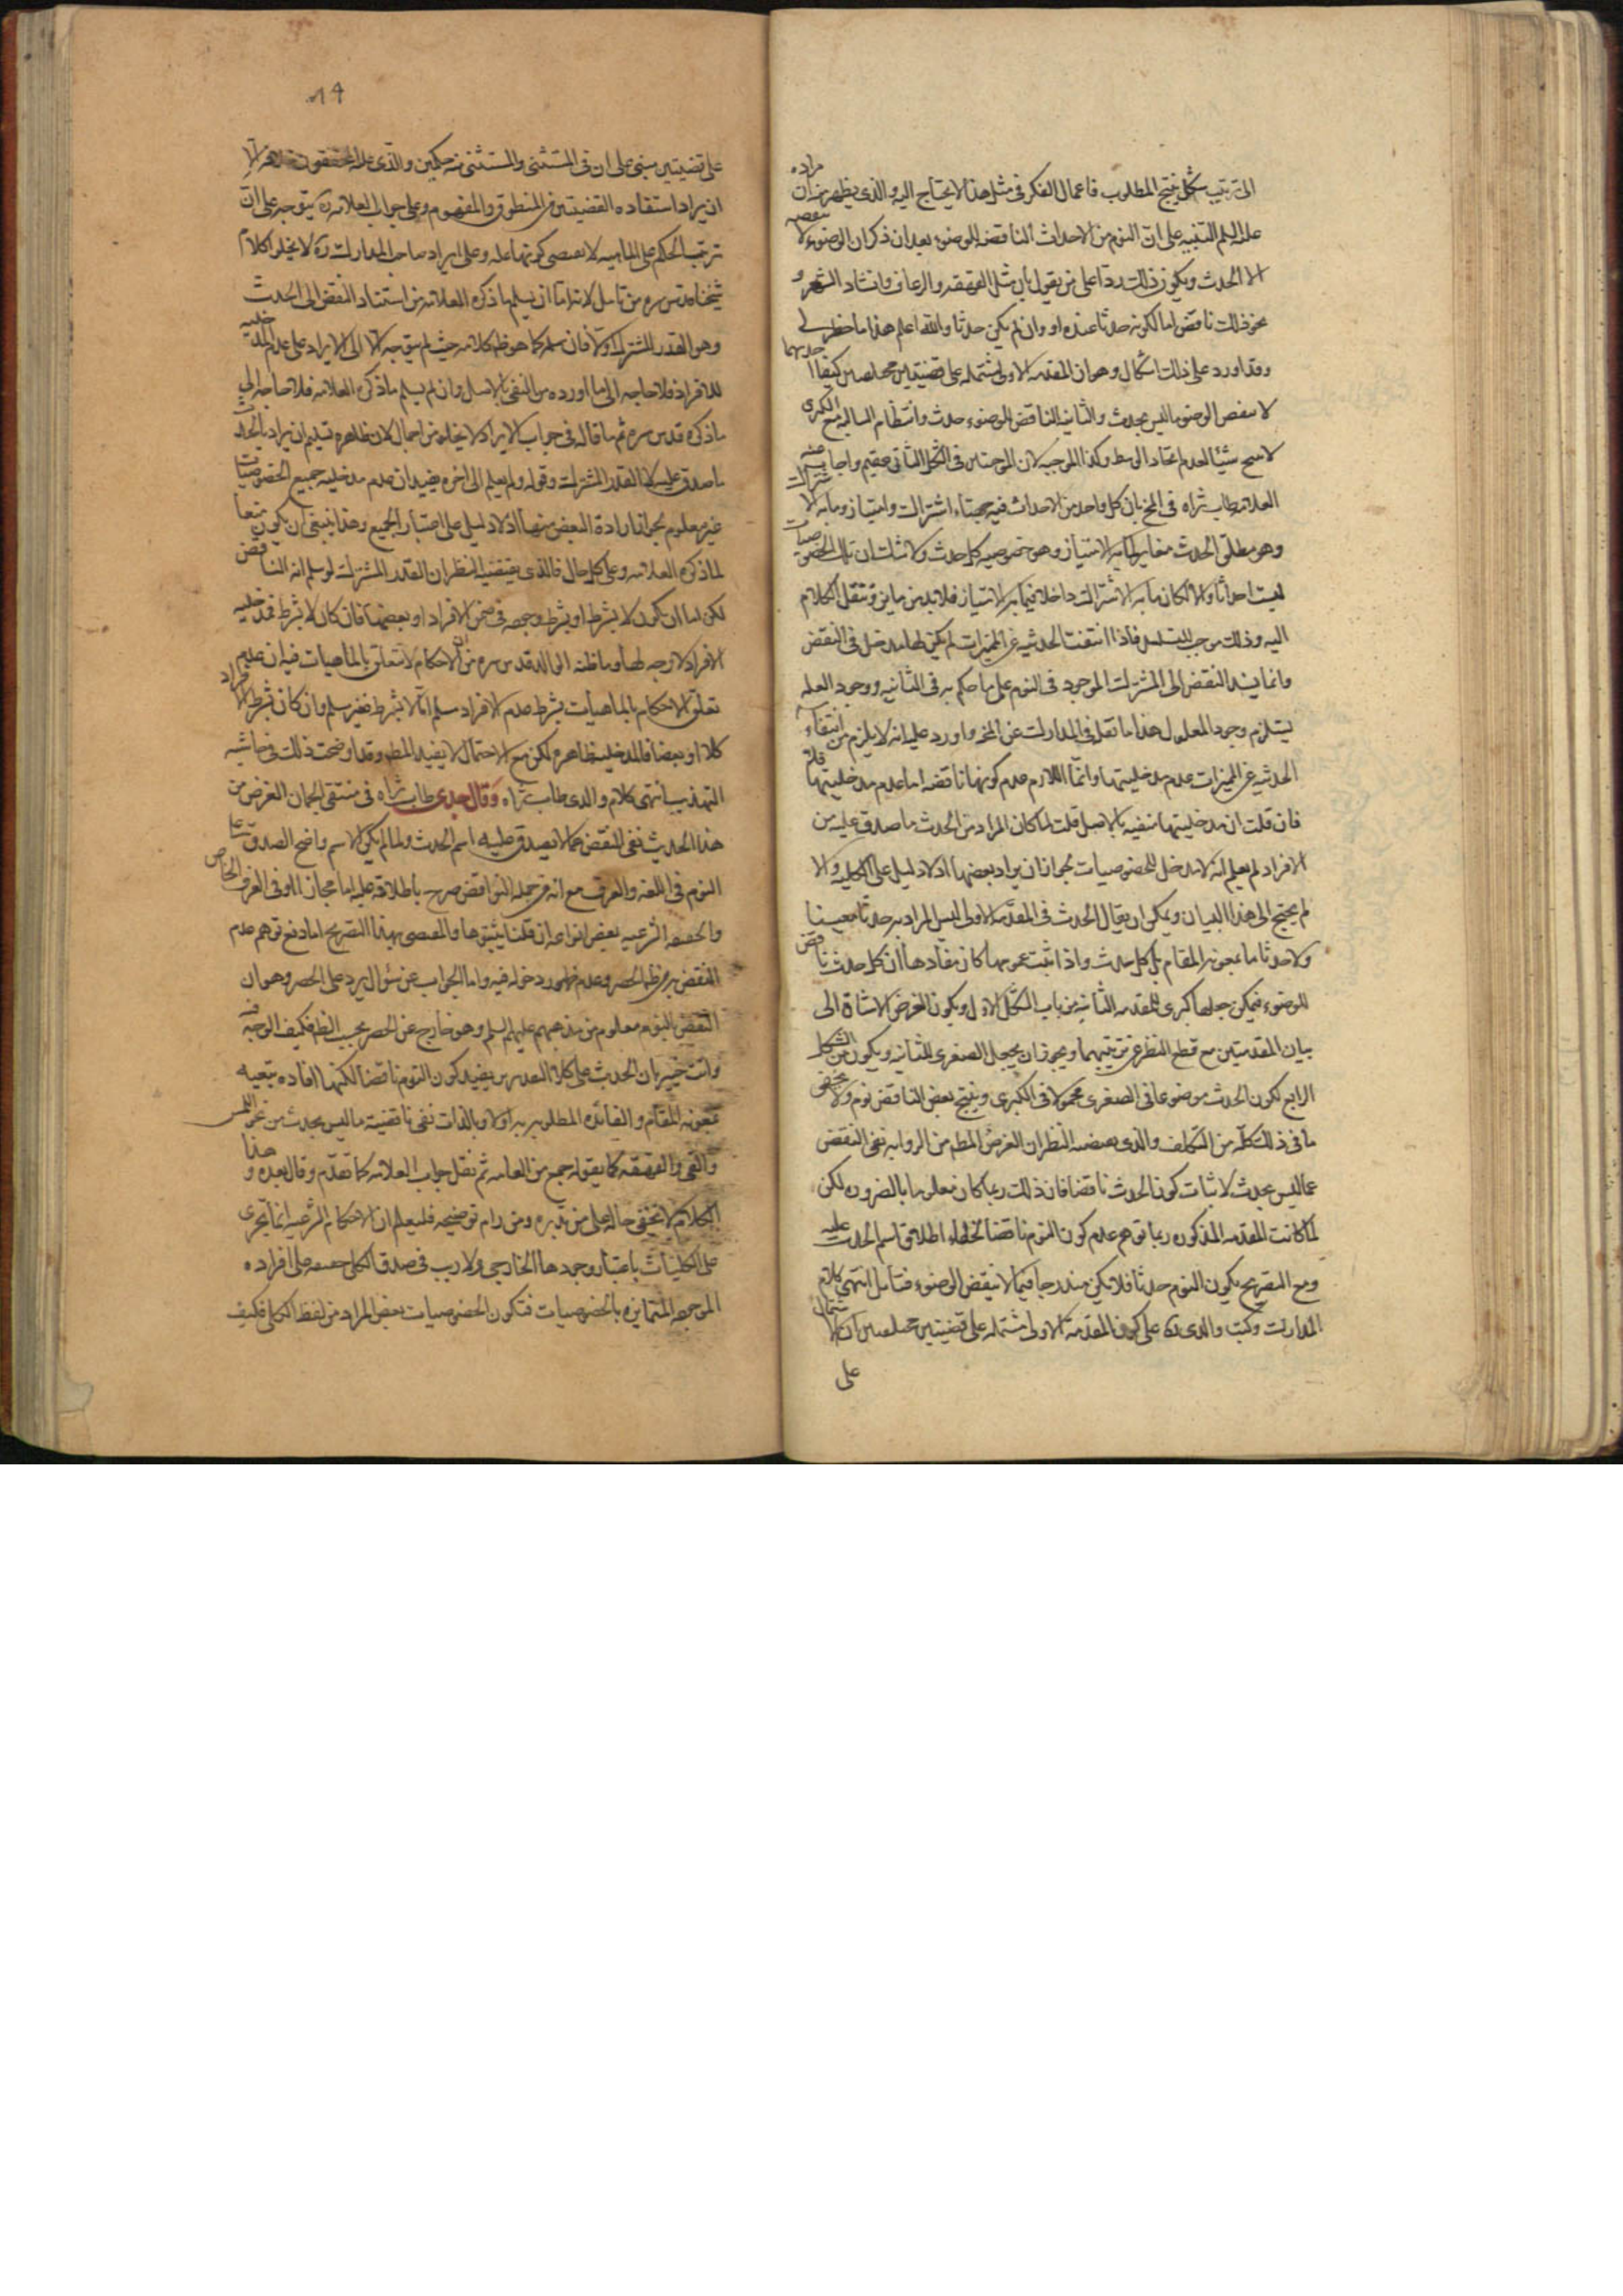 الى ترتيب شكل ينتج المطلوب فاعمال الفكر في مثل هذا لا يحتاج اليه والذي يظهر من ان مراده
عليه السلم التنبيه على ان النوم من الاحداث الناقضه للوضوء بعد ان ذكر ان الوضوء لا ينقضه
الا الحدث ويكون ذلك ردا على من يقول بان مثل القهقهه والرعاف وانشاد الشعر و
نحو ذلك ناقض اما لكونه حدثا عنده او وان لم يكن حدثا والله اعلم هذا ما خطر لي
وقد اورد على ذلك اشكال وهو ان المقدمه الاولى مشتمله على قضيتين
لا ينقض الوضوء ما ليس بحدث والثانيه الناقض للوضوء حدث وانتظام السالبه مع الكبرى
لا ينتج شيئا لعدم اتحاد الوسط وكذا الموجبه لان الموجبتين في الشكل الثاني عقيم واجاب عنه
العلامه طاب ثراه في المخ بان كل واحد من الاحداث فيه جهتا اشتراك وامتياز وما به الاشتراك
وهو مطلق الحدث مغاير لما به الامتياز وهو خصوصيه كل حدث ولا شك ان تلك الخصوصيات
ليست احداثا والا لكان ما به الاشتراك داخلا فيما به الامتياز فلا بد من مايز وننقل الكلام
اليه وذلك موجب للتسلسل فاذا انتفت الحدثيه عن المميزات لم يكن لها مدخل في النقض
وانما يستند النقض الى المشترك الموجود في النوم على ما حكم به في الثانيه ووجود العله
يستلزم وجود المعلول هذا ما نقله في المدارك عن المخ واورد عليه انه لا يلزم من انتفاء
الحدثيه عن المميزات عدم مدخليتها وانما اللازم عدم كونها ناقضه اما عدم مدخليتها فلا
فان قلت ان مدخليتها منفيه بالاصل قلت لما كان المراد من الحدث ما صدق عليه من
الافراد لم يعلم انه لا مدخل للخصوصيات لجواز ان يراد بعضها اذ لا دليل على الكليه والا
لم يحتج الى هذا البيان ويمكن ان يقال الحدث في المقدمه الاولى ليس المراد به حدثا معينا
ولا حدثا ما بمعونه المقام بل كل حدث واذا ثبت عمومها كان مفادها ان كل حدث ناقض
للوضوء فيمكن جعلها كبرى للمقدمه الثانيه من باب الشكل الاول ويكون الغرض الاشاره الى
بيان المقدمتين مع قطع النظر عن ترتيبهما ويجوز ان يجعل الصغرى الثانيه ويكون من الشكل
الرابع لكون الحدث موضوعا في الصغرى محمولا في الكبرى وينتج بعض الناقض نوم ولا يخفى
ما في ذلك كله من التكلف والذي يقتضيه النظر ان الغرض المطم من الروايه نفي النقض
عما ليس بحدث لا اثبات كون الحدث ناقضا فان ذلك ربما كان معلوما بالضروره لكن
لما كانت المقدمه المذكوره ربما توهم عدم كون النوم ناقضا لخفاء اطلاق اسم الحدث عليه
ومع التصريح بكون النوم حدثا فلا يكون مندرجا فيما لا ينقض الوضوء فتامل انتهى كلام
المدارك وكتب والدي ره على كون المقدمه الاولى مشتمله على قضيتين ان الاشتمال
على
على قضيتين مبني على ان في المستثنى والمستثنى منه حكمين والذي عليه المحققون الا
ان يراد استفاده القضيتين من المنطوق والمفهوم وعلى جواب العلامه ره يتوجه على ان
ترتب الحكم على الماهيه لا يقتضي كونها عله وعلى ايراد صاحب المدارك ره لا يخلو كلام
شيخنا قدس سره من تامل لانه اما ان يسلم ما ذكره العلامه من استناد النقض الى الحدث
وهو القدر المشترك او لا فان سلم كما هو ظ كلامه حيث لم يتوجه الا الى الايراد على عدم المدخليه
للافراد فلا حاجه الى ما اورده من النفي بالاصل وان لم يسلم ما ذكره العلامه فلا حاجه الى
ما ذكره قدس سره ثم ما قاله في جواب الايراد لا يخلو من اجمال لان ظاهره تسليم ان يراد بالحدث
ما صدق عليه لا القدر المشترك وقوله ولم يعلم الى اخره يفيد ان عدم مدخليه جميع الخصوصيات
غير معلوم لجواز اراده البعض منها اذ لا دليل على اعتبار الجميع وهذا ينبغي ان يكون منعا
لما ذكره العلامه وعلى كل حال فالذي يقتضيه النظر ان القدر المشترك لو سلم انه الناقض
لكن اما ان يكون لا بشرط او بشرط وجوده في ضمن الافراد او بعضها فان كان لا بشرط فمدخليه
الافراد لا وجه لها وما ظنه الوالد قدس سره من ان الاحكام لا تتعلق بالماهيات فيه ان عدم
تعلق الاحكام بالماهيات بشرط عدم الافراد مسلم اما لا بشرط فغير مسلم وان كان بشرط الافراد
كلا او بعضا فالمدخليه ظاهره لكن مع الاحتمال لا يفيد المط وقد اوضحت ذلك في حاشيه
التهذيب انتهى كلام والدي طاب ثراه وقال جدي طاب ثراه في منتقى الجمان الغرض من
هذا الحديث نفي النقض عما لا يصدق عليه اسم الحدث ولما لم يكن الاسم واضح الصدق على
النوم في اللغه والعرف مع انه من جمله النواقض صرح باطلاقه عليه اما مجازا او في العرف الخاص
والحقيقه الشرعيه بعض انواعه ان قلنا بثبوتها والمقتضي بهذا التصريح اما دفع توهم عدم
النقض به من ظ الحصر وعدم ظهور دخوله فيه واما الجواب عن سؤال يرد على الحصر وهو ان
النقض بالنوم معلوم من مذهبهم عليهم السلم وهو خارج عن الحصر بحسب الظ فكيف الوجه فيه
وانت خبير بان الحديث على كلا التقديرين يفيد كون النوم ناقضا لكنها افاده تبعيه
بمعونه المقام والفائده المطلوبه به اولا وبالذات نفي ناقضيه ما ليس بحدث من نحو اللمس
والقي والقهقهه كما يقوله جمع من العامه ثم نقل جواب العلامه كما تقدم وقال بعده وهذا
الكلام لا يخفى حاله على من تدبره ومن رام توضيحه فليعلم ان الاحكام الشرعيه انما تجري
على الكليات باعتبار وجودها الخارجي ولا ريب في صدق الكلي حقيقه على افراده
الموجوده المتمايزه بالخصوصيات فتكون الخصوصيات بعض المراد من لفظ الكلي فكيف